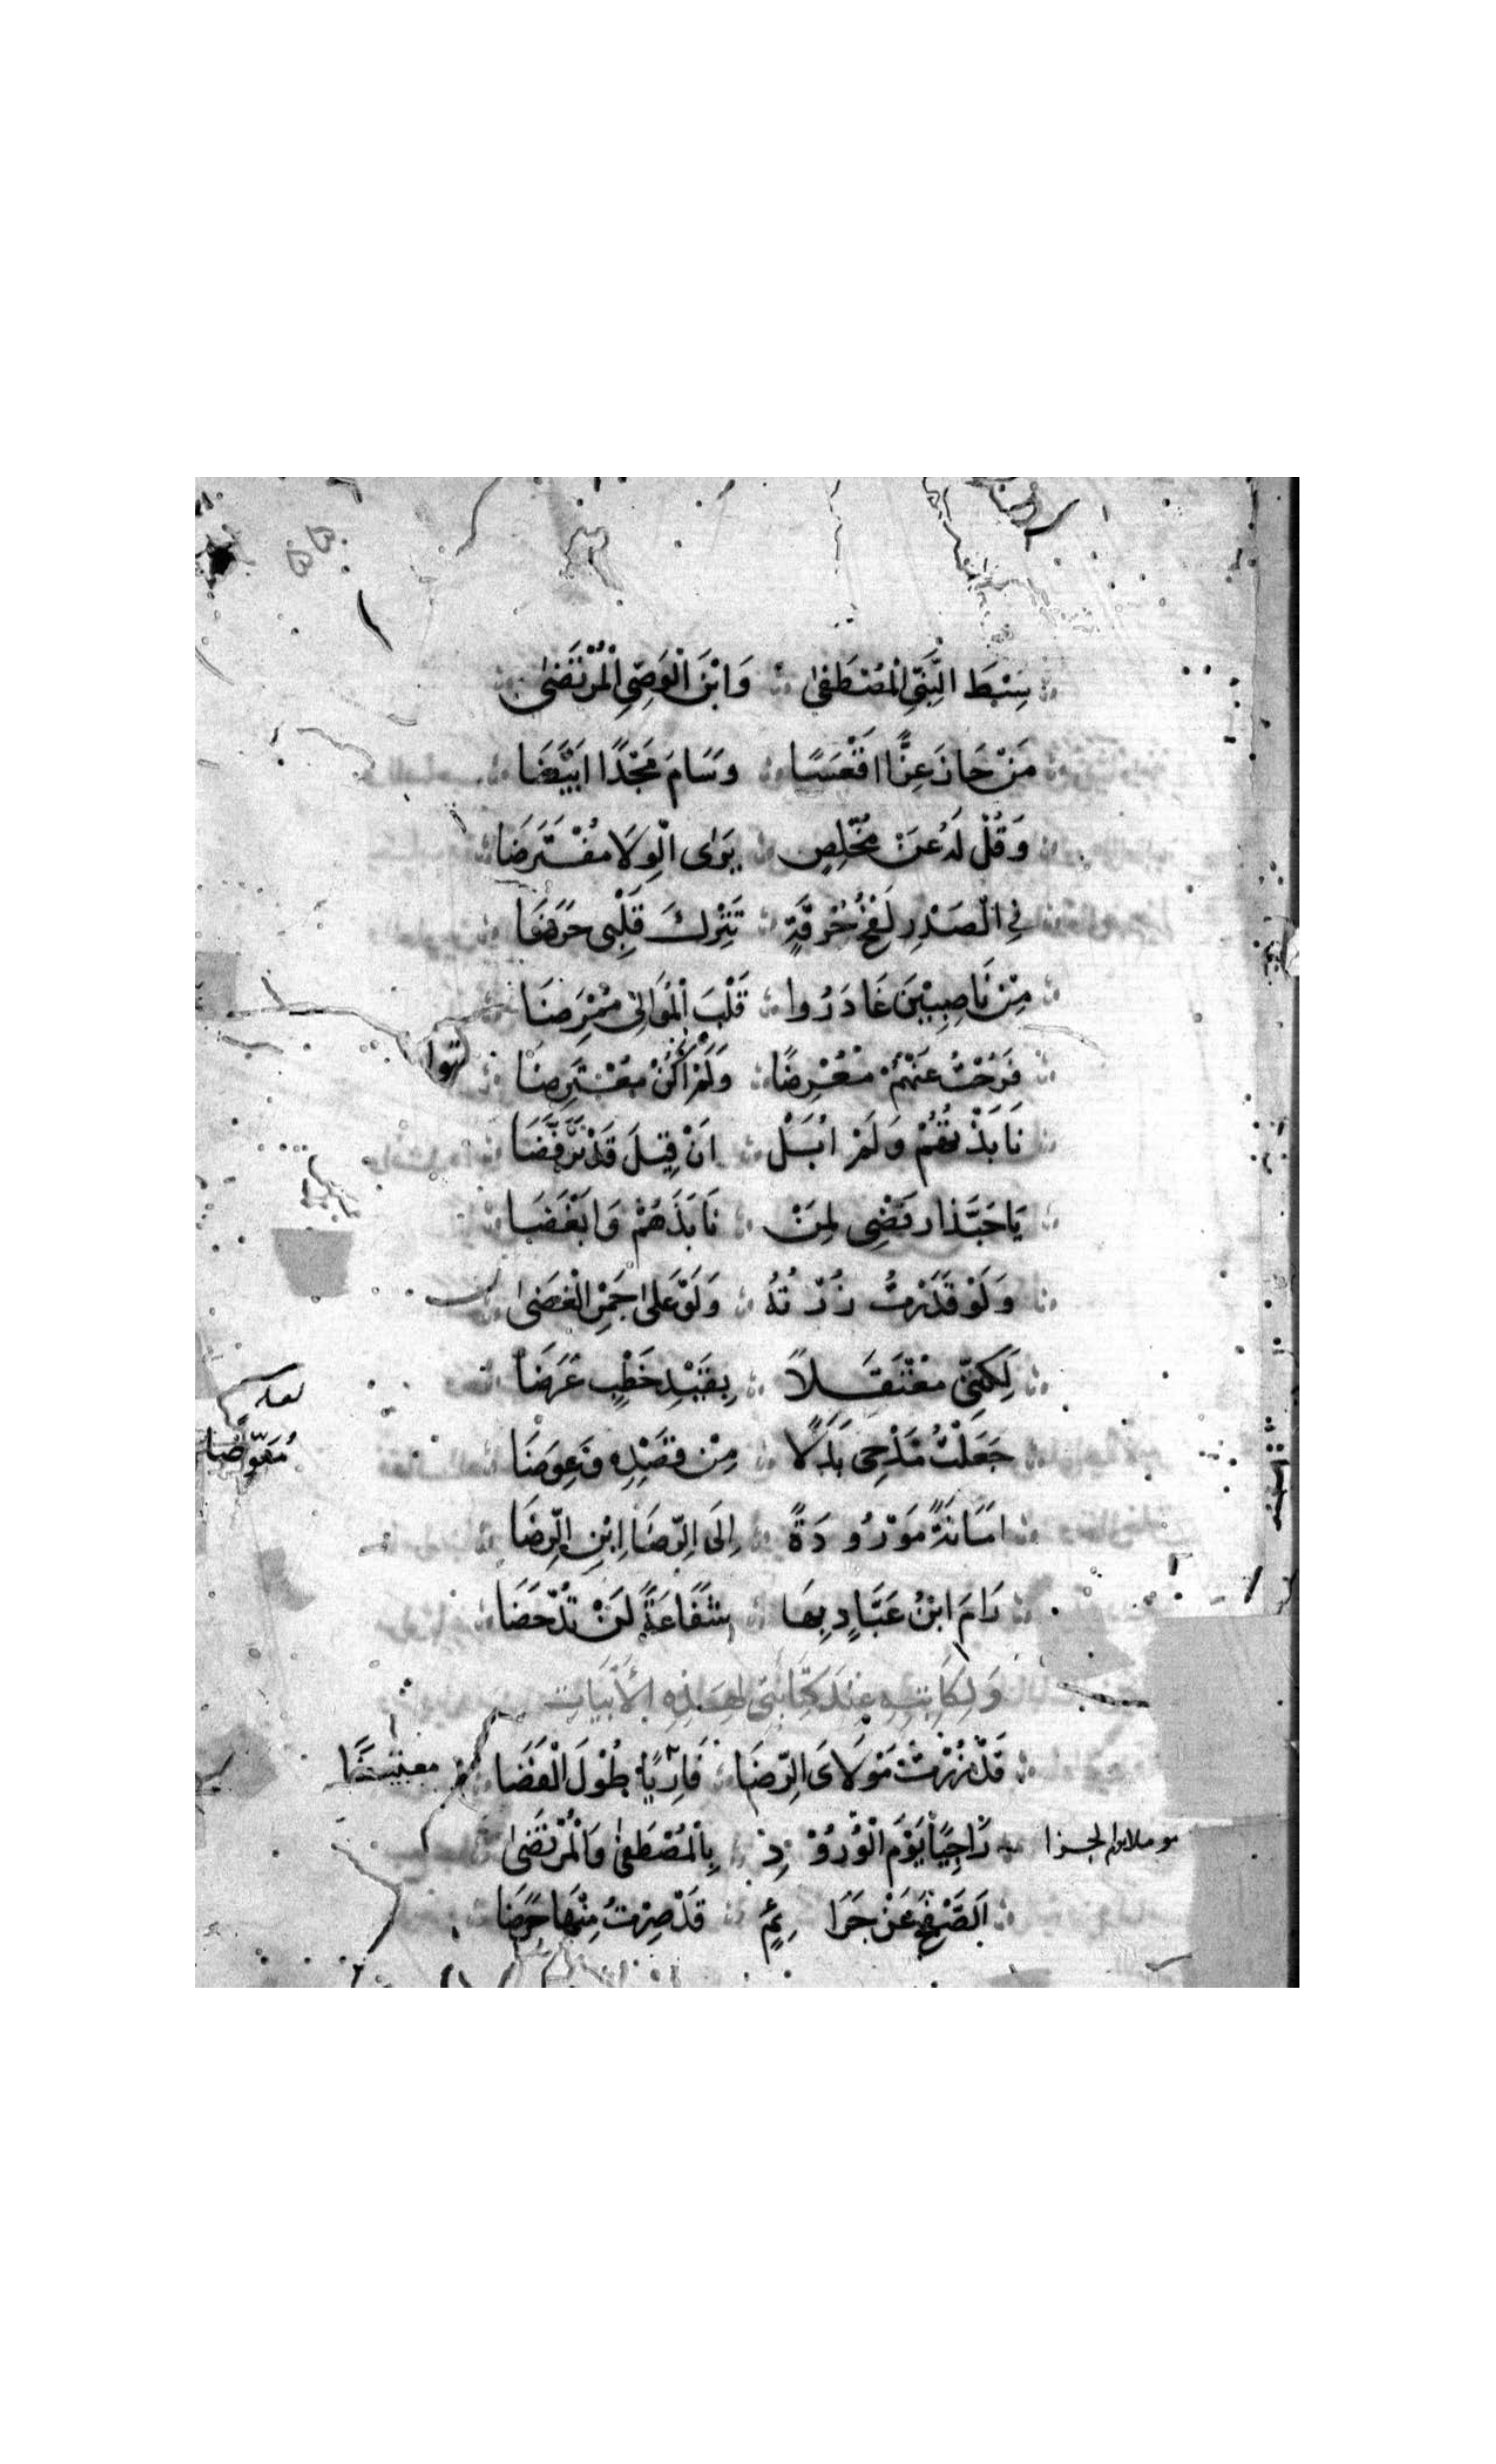 سِبْطَ النَّبِيِّ الْمُصْطَفٰى وَابْنَ الْوَصِيِّ الْمُرْتَضٰى
مَنْ حَازَ عِزًّا اَقْعَسًا وَسَامَ مَجْدًا اَبْيَضَا
وَقُلْ لَهُ عَنْ مُخْلِصٍ يَرٰى الْوِلَا مُفْتَرَضَا
فِي الْصَدْرِ لَفْحُ حُرْقَةٍ تَتْرُكَ قَلْبِى حَرَضَا
مِنْ نَاصِبِيْنَ غَادَرُوا قَلْبَ الْمُوَالِي مُمْرَضَا
فَرُحْتُ عَنْهُمْ مُعْرِضًا وَلَمْ اَكُنْ مُعْتَرِضَا
نَابَذْتُهُمْ وَلَمْ اُبَلْ اَنْ قِيلَ قَدْ تَرَفَّضَا
يَا حَبَّذَا رَفْضِى لِمَنْ نَابَذَهُمْ وَابْغَضَا
وَلَوْ قَدَرْتُ زُرْتُهُ وَلَوْ عَلٰى جَمْرِ الْغَضٰى
لٰكِنَّنِى مُعْتَقَلًا بِقَيْدِ خَطْبٍ عَرَضَا
جَعَلْتُ مَدْحِى بَدَلًا مِنْ قَصْدِهِ وَعِوَضَا
لعله
مُعَوِّضًا
اَمَانَةً مَوْرُودَةً اِلَى الرِّضَا ابْنِ الرِّضَا
رَامَ ابْنُ عَبَّادٍ بِهَا شَفَاعَةً لَنْ تُدْحَضَا
وَلِكَاتِبِهِ عِنْدَ كِتَابَتِى لِهٰذِهِ الْأَبْيَاتِ
قَدْ زُرْتُ مَوْلَاىَ الرِّضَا فَارِيًا طُوْلَ الْفَضَا
رَاجِيًا يَوْمَ الْوُرُوْدِ بِالْمُصْطَفٰى وَالْمُرْتَضٰى
اَلصَّفْحَ عَنْ جَرَائِمٍ قَدْ صِرْتُ مِنْهَا حَرَضَا